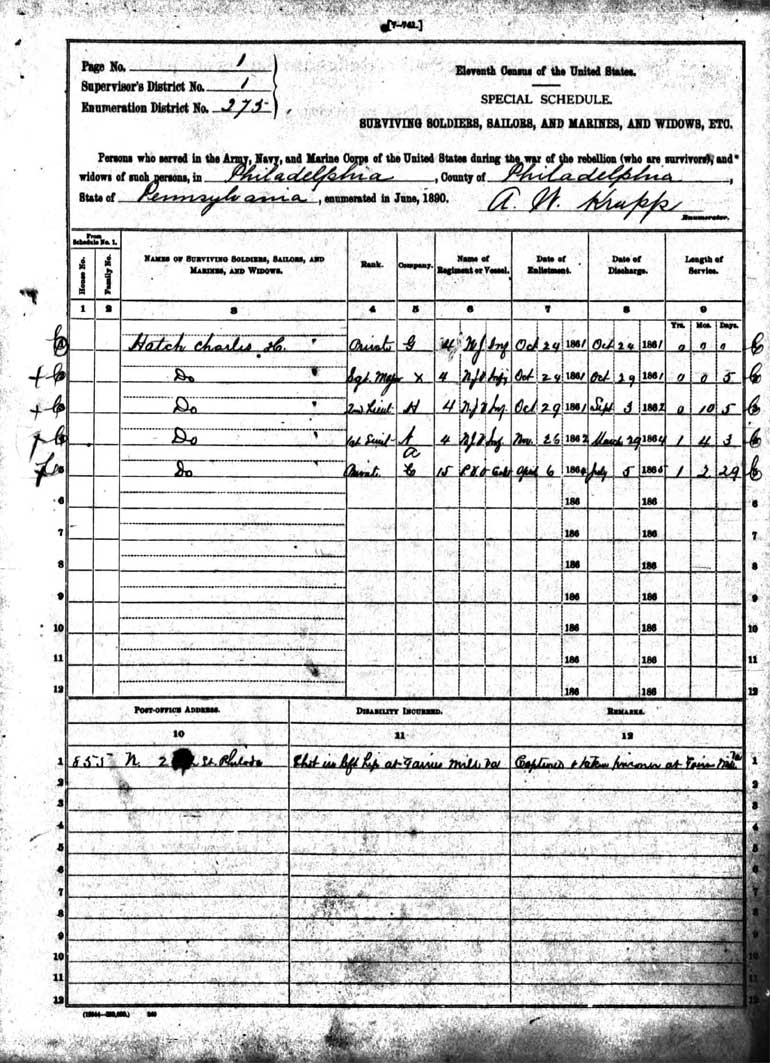 [7-741.]
Page No. 1
Supervisor's District No. 1
Enumeration District No. 275
Eleventh Census of the United States.
SPECIAL SCHEDULE.
SURVIVING SOLDIERS, SAILORS, AND MARINES, AND WIDOWS, ETC.
Persons who served in the Army, Navy, and Marine Corps of the United States during the war of the rebellion (who are survivors), and
widows of such persons, in Philadelphia, County of Philadelphia,
State of Pennsylvania, enumerated in June, 1890. A. W. Krupp
Enumerator.
From Schedule No. 1. House No. Family No. NAMES OF SURVIVING SOLDIERS, SAILORS, AND MARINES, AND WIDOWS. Rank. Company. Name of Regiment or Vessel. Date of Enlistment. Date of Discharge. Length of Service.
1 2 3 4 5 6 7 8 9
Yrs. Mos. Days.
Hatch Charles H. Private G 4 N J Inf Oct 24 1861 Oct 24 1861 0 0 0
Do Sgt. Major X 4 N J V Inf Oct 24 1861 Oct 29 1861 0 0 5
Do 2nd Lieut H 4 N J V Inf Oct 29 1861 Sept 3 1862 0 10 5
Do 1st Lieut A 4 N J V Inf Nov. 26 1862 March 29 1864 1 4 3
a
Do Private C 15 P V Cav April 6 1864 July 5 1865 1 2 29
6 186 186 6
7 186 186 7
8 186 186 8
9 186 186 9
10 186 186 10
11 186 186 11
12 186 186 12
POST-OFFICE ADDRESS. DISABILITY INCURRED. REMARKS.
10 11 12
1 855 N. 2 St. Philada Shot in left hip at Gaines Mills Va Captured & taken prisoner at 1
2 2
3 3
4 4
5 5
6 6
7 7
8 8
9 9
10 10
11 11
12 12